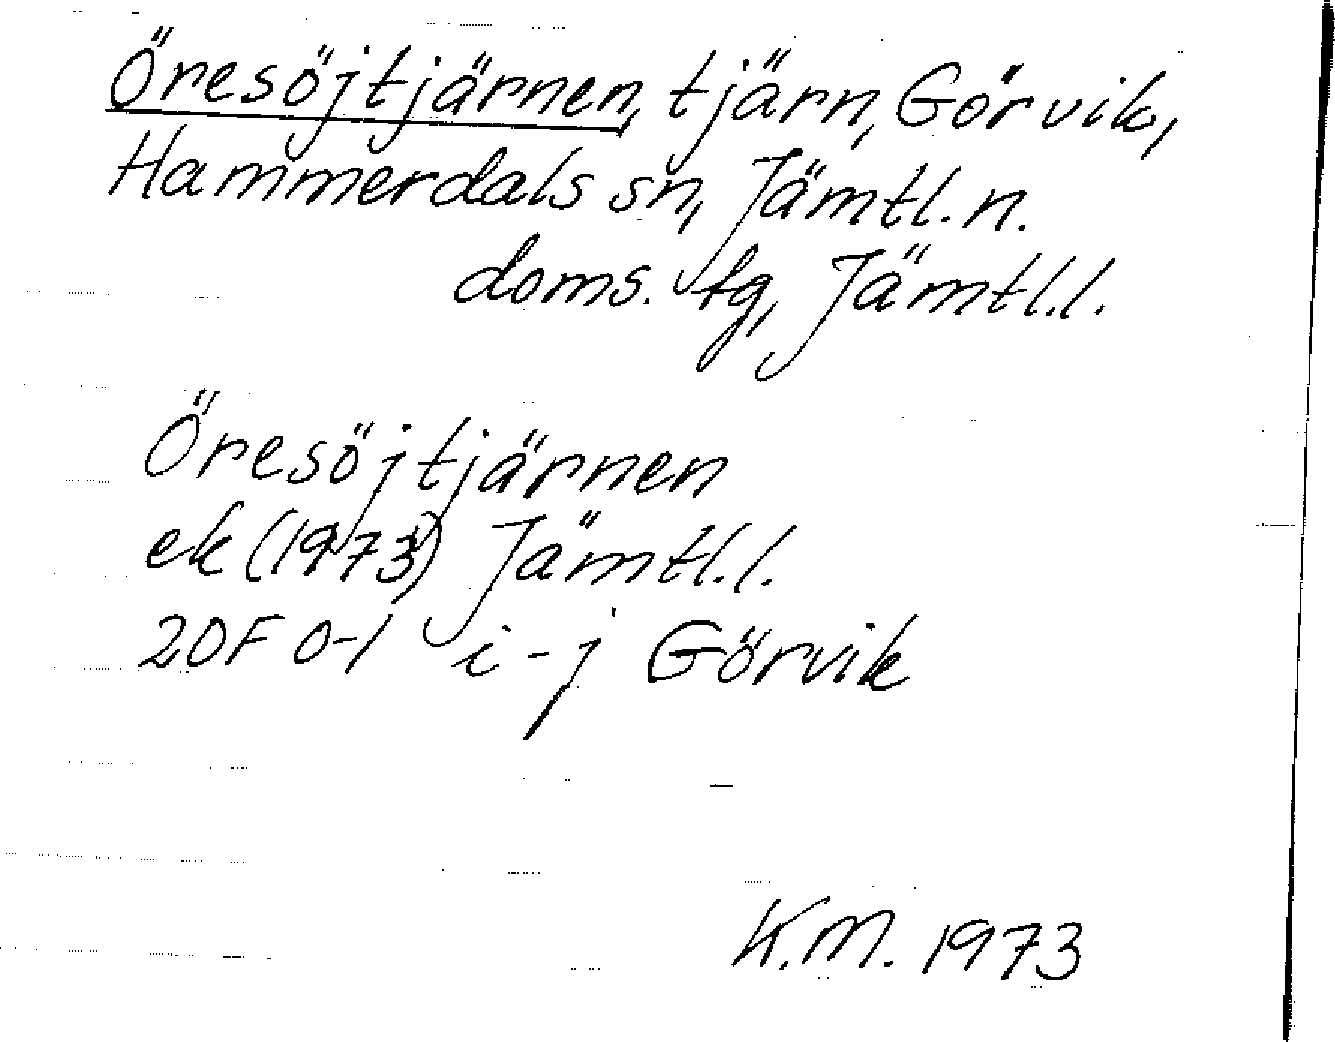 Öresöjtjärnen, tjärn, Görvik,
Hammerdals sn, Jämtl. n.
doms. tg, Jämtl.l.
Öresöjtjärnen
ek (1973) Jämtl.l.
20F 0-1 i-j Görvik
K.M. 1973